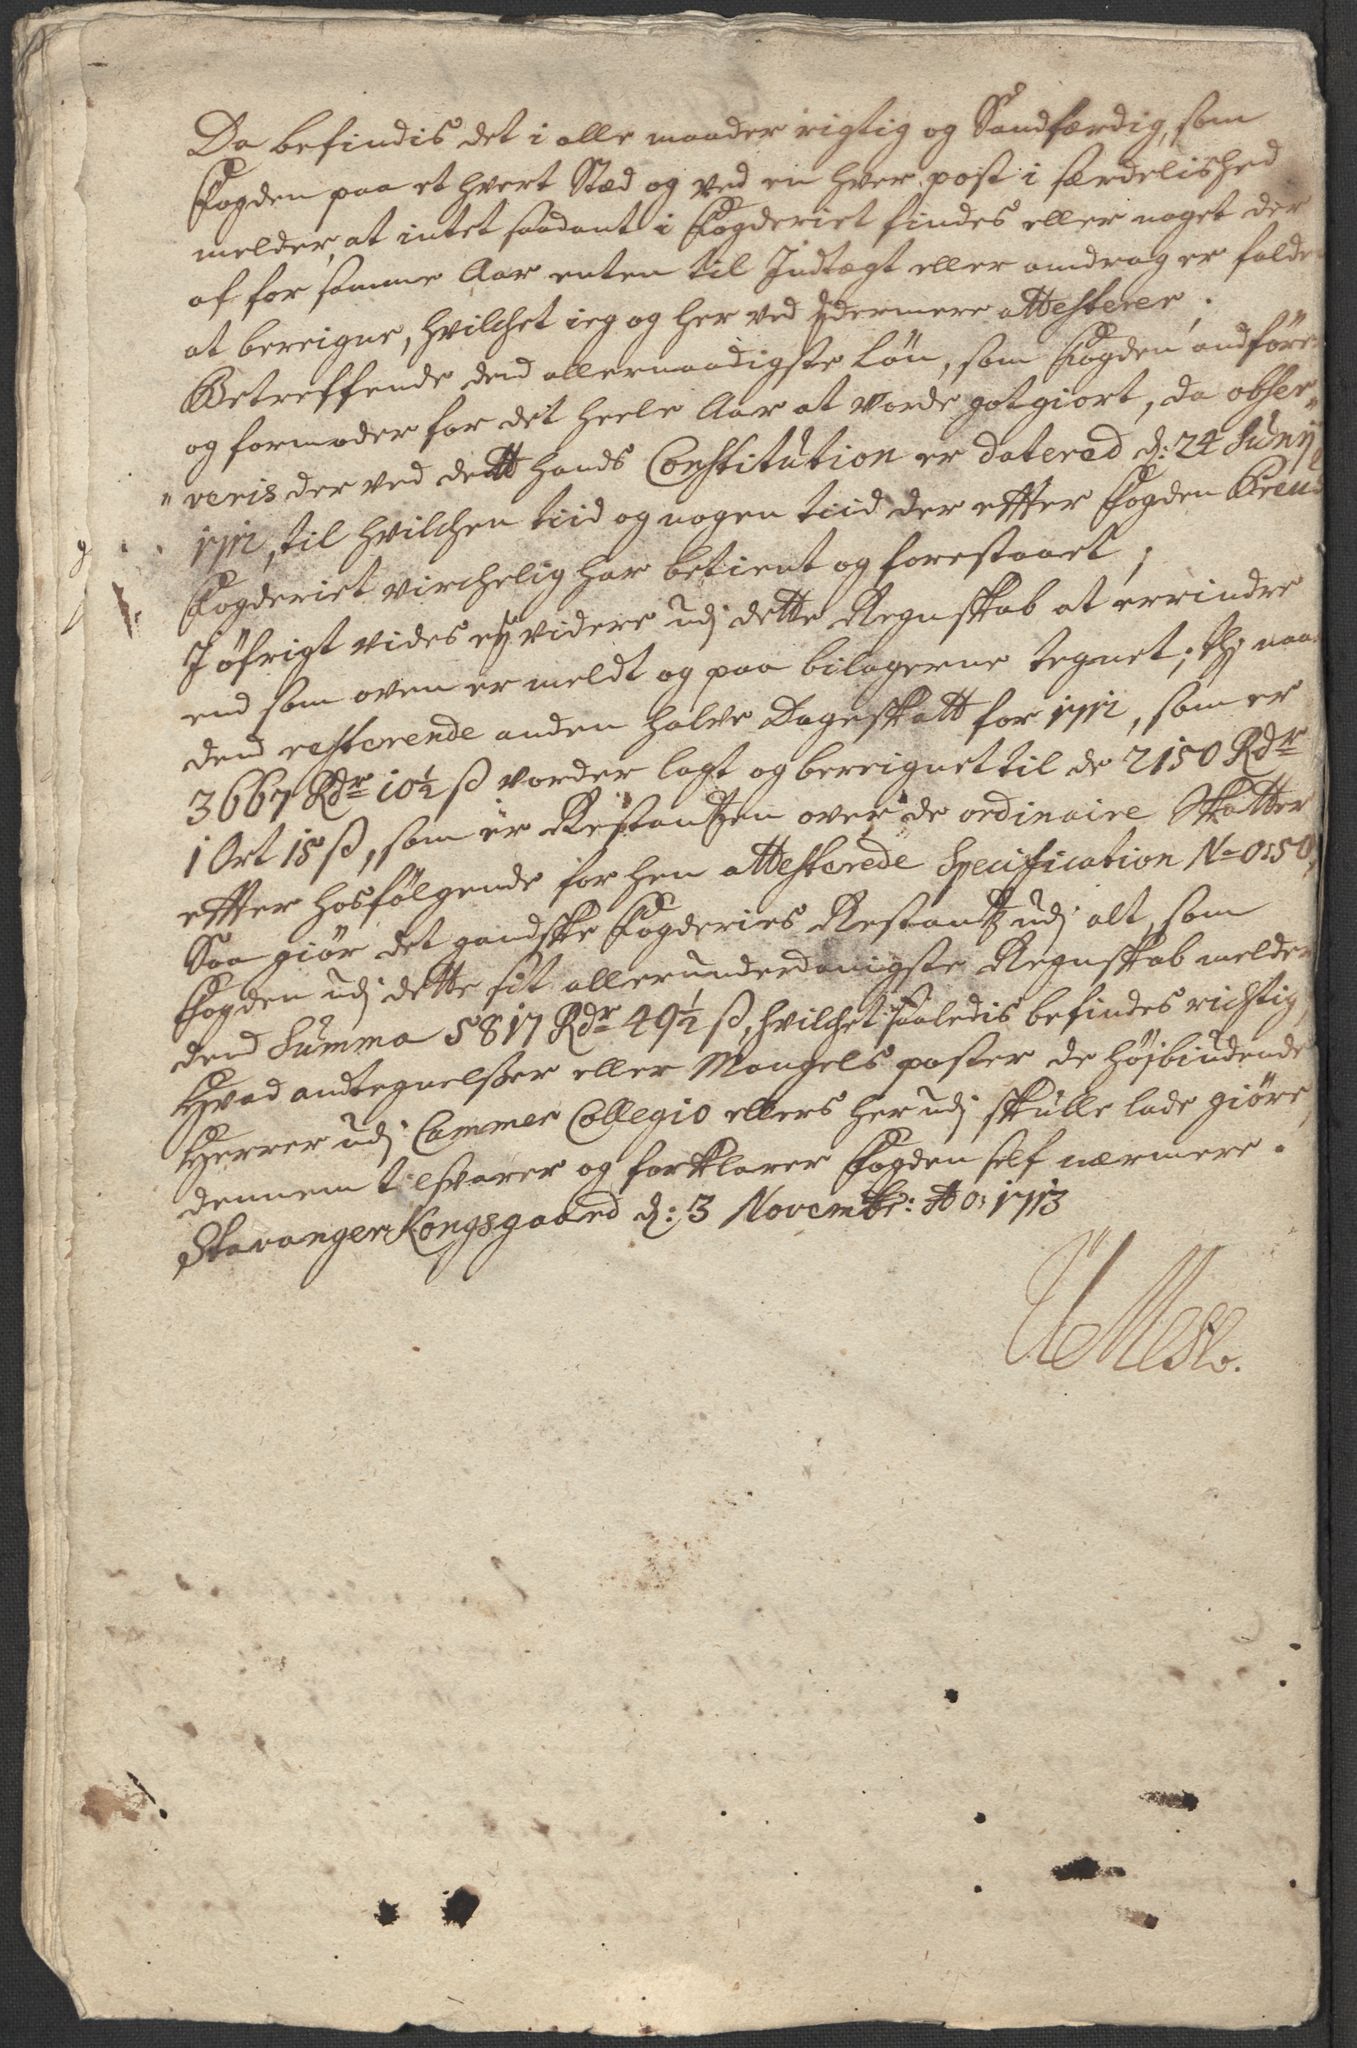 Da befindis det i alle maader rigtig og Sandfærdig, som
Fogden paa et hvert Stæd og ved en hver post i særdelished
melder, at intet saadant i Fogderiet findes eller noget der
af for samme Aar enten til Indtægt eller andrag er falde
at bereigne, hvilchet ieg og her ved ydermere attesterer,
Betreffende dend allernaadigste Løn, som Fogden andføre
og formoder for det heele Aar at vorde gotgiort, da obser„
„veris der ved dett hands Constitution er daterad d: 24 Junij
1712, til hvilchen tiid og nogen tiid der effter Fogden
Fogderiet virchelig har betient og forestaaet;
I øfrigt vides ej videre udj dette Regnskab at errindre
end som oven er meldt og paa bilagerne tegnet; thj naar
dend resterende anden halve Dageskatt for 1712, som er
3667 Rdr 10½ ß vorder lagt og bereignet til de 2150 Rdr
1 Ort 15 ß, som er Restantzen over de ordinaire Skatter
effter hosfølgende forhen attesterede Specification No 0:50,
Saa giør det gandske Fogderies Restantz udj alt, som
Fogden udj dette sit allerunderdanigste Regnskab melder
dend Summa 5817 Rdr 49½ ß, hvilchet saaledis befindes richtig,
Hvad andtegnelsser eller Mangels poster de Højbiudende
Herrer udj Cammer Collegio ellers her udj skulle lade giøre,
dennem tilsvarer og forklarer Fogden self nærmere.
Stavanger Kongsgaard d: 3 Novembr: Ao: 1713